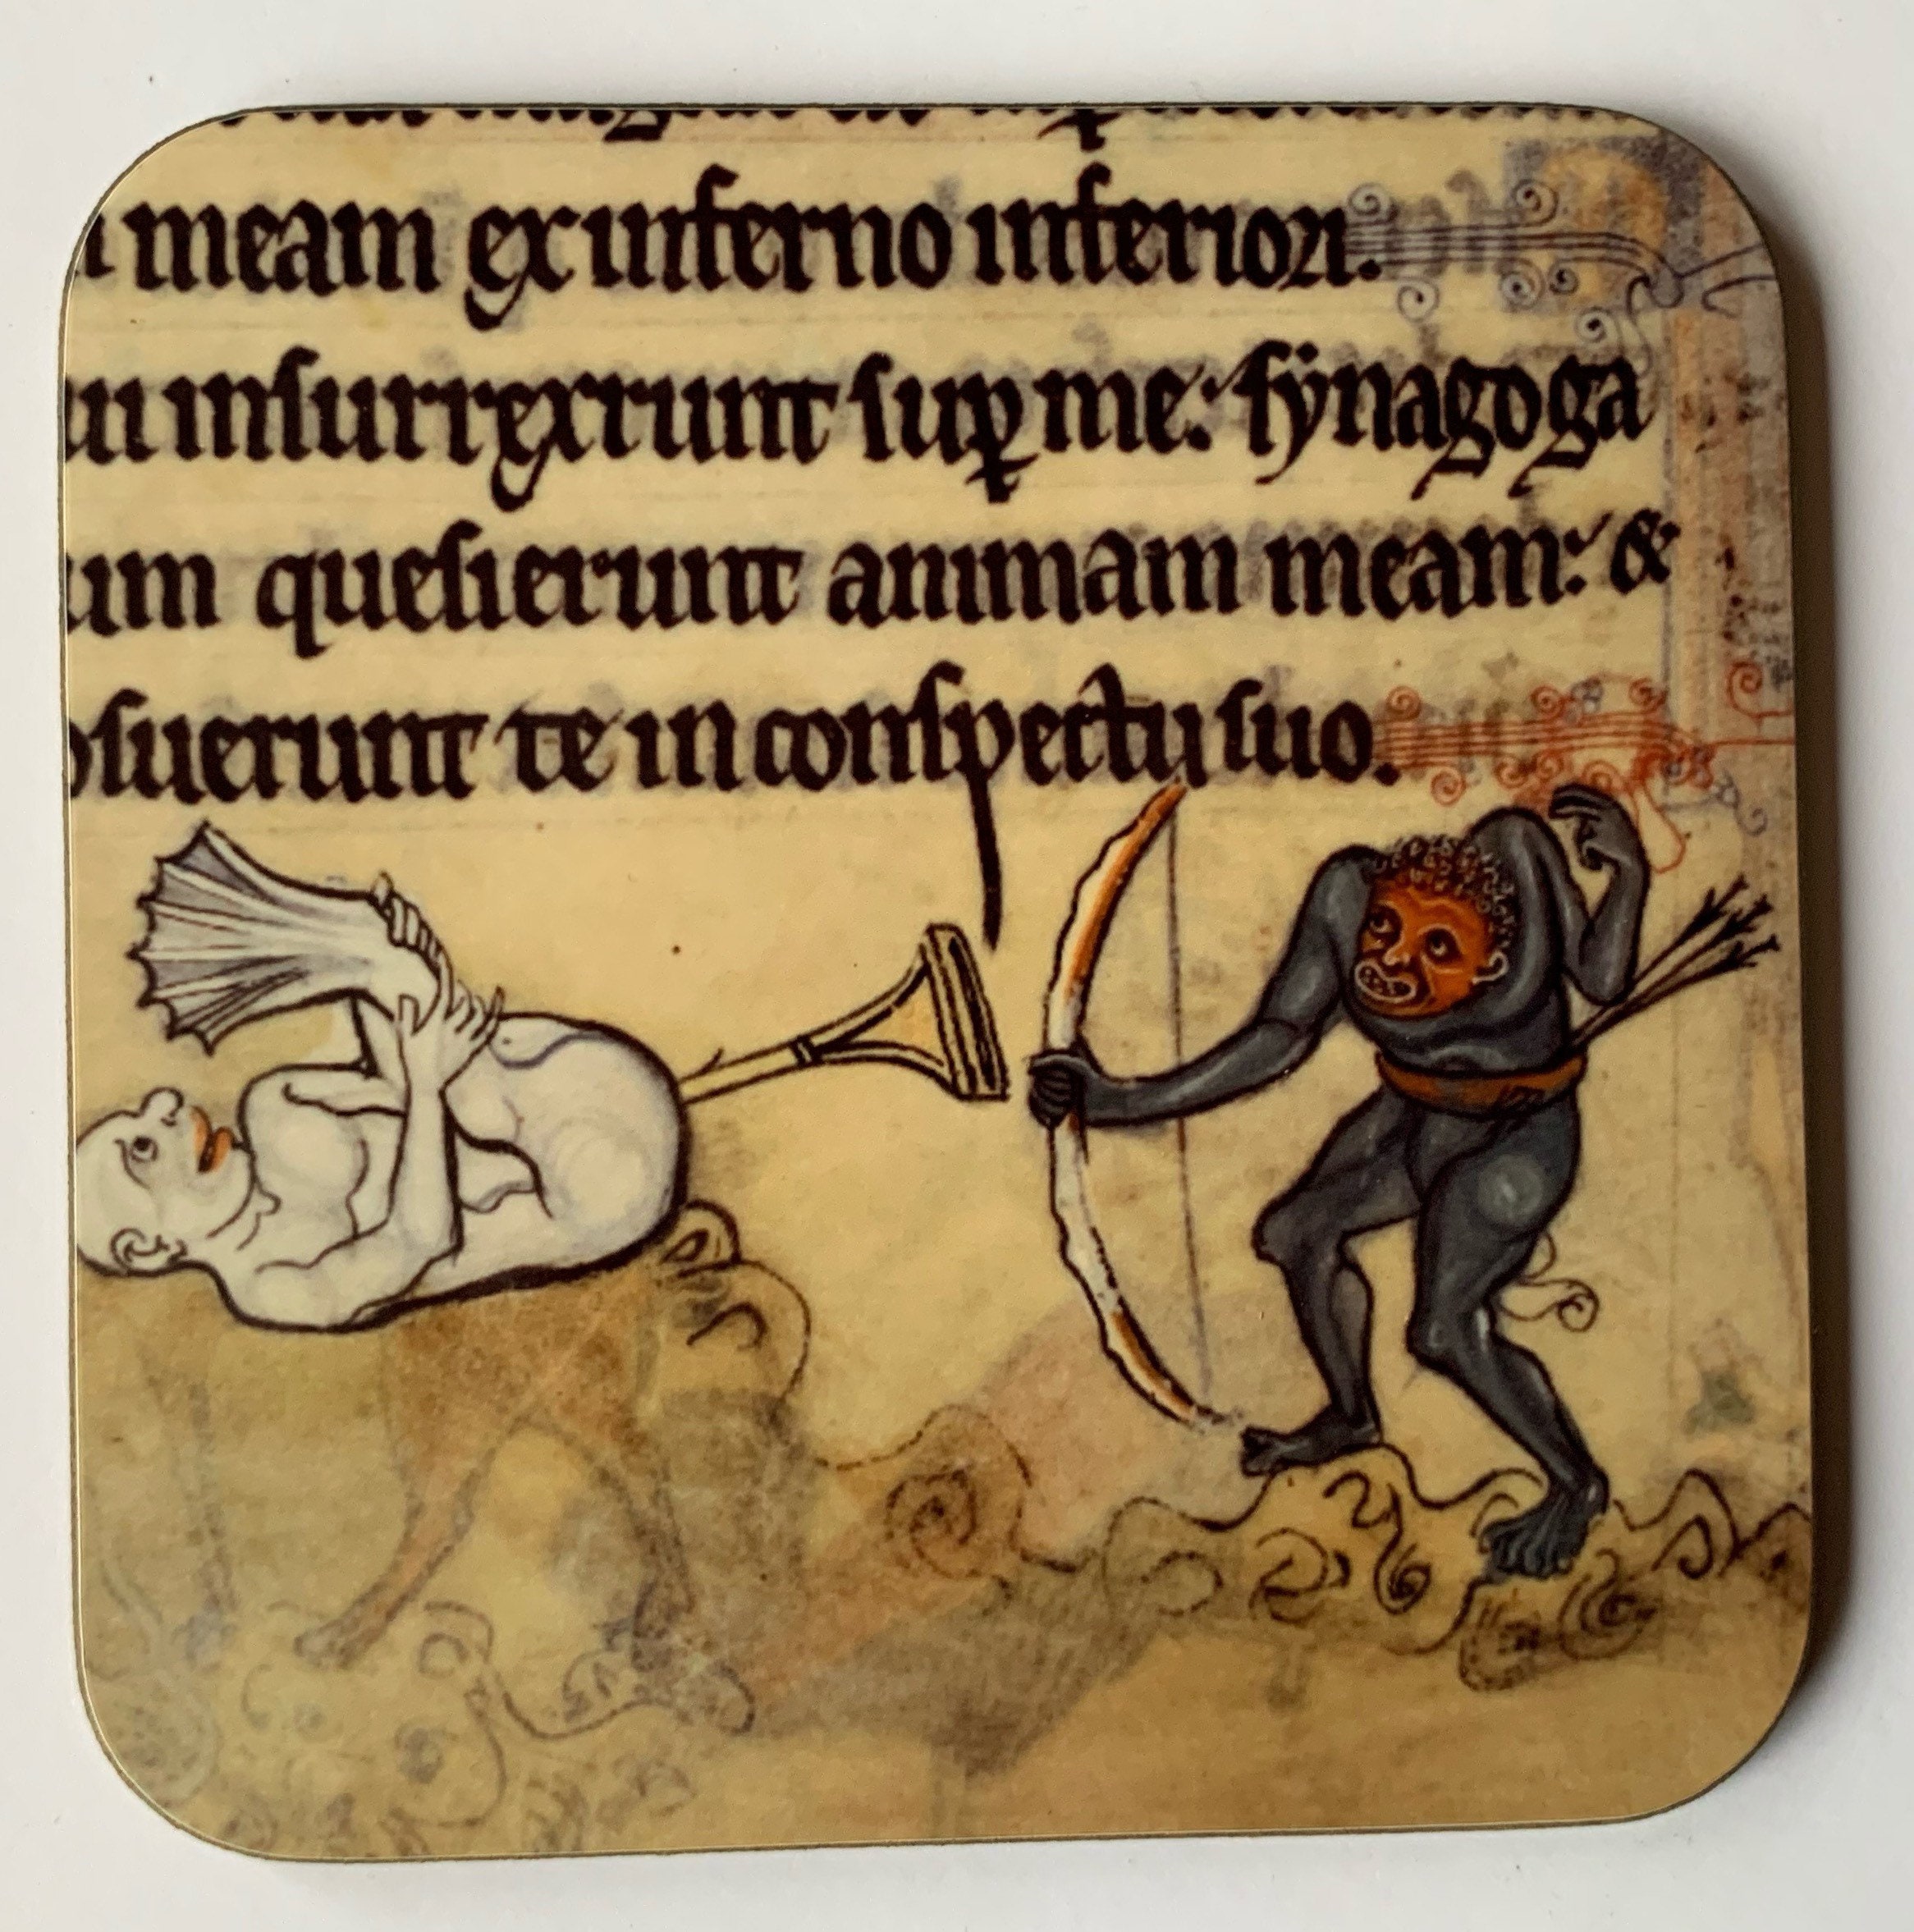 meam ex inferno inferiori.
insurrexerunt sup̱ me: synagoga
quesierunt animam meam: &
suerunt te in conspectu suo.